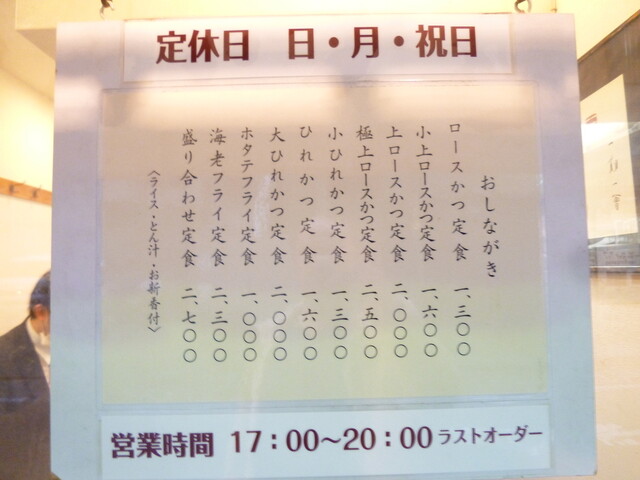 定休日 日・月・祝日
おしながき
ロースかつ定食 一、三〇〇
小上ロースかつ定食 一、六〇〇
上ロースかつ定食 二、〇〇〇
極上ロースかつ定食 二、五〇〇
小ひれかつ定食 一、三〇〇
ひれかつ定食 一、六〇〇
大ひれかつ定食 二、〇〇〇
ホタテフライ定食 一、〇〇〇
海老フライ定食 二、三〇〇
盛り合わせ定食 二、七〇〇
〈ライス・とん汁・お新香付〉
営業時間 17:00～20:00 ラストオーダー